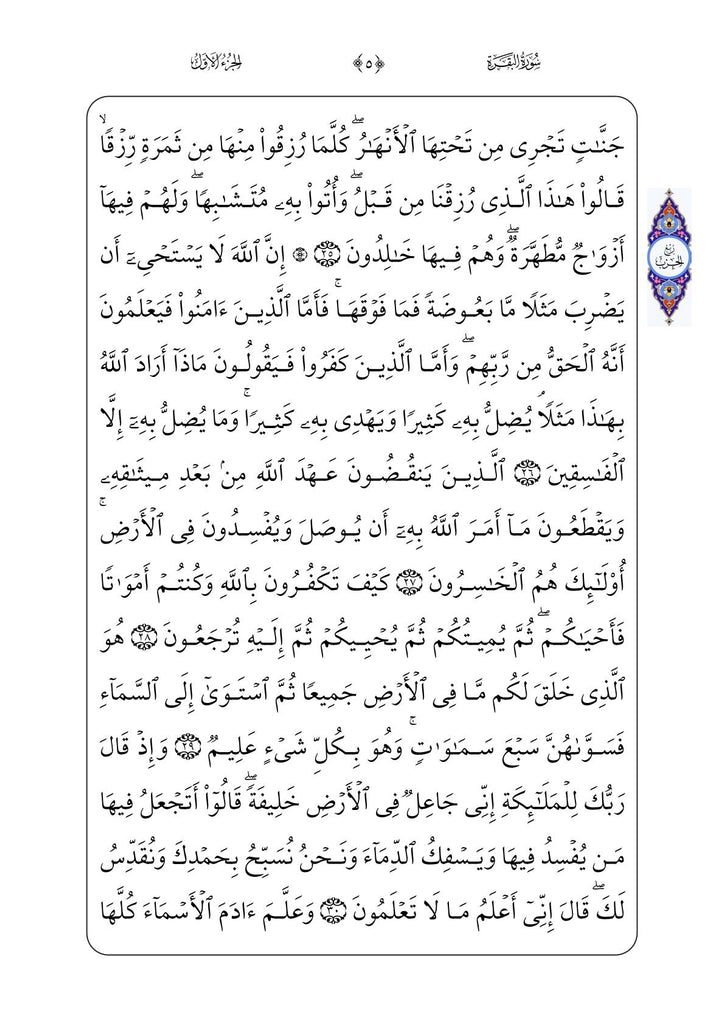 سُورَةُ البَقَرَة ﴿٥﴾ الجُزْءُ الأَوَّلُ
جَنَّٰتٖ تَجۡرِي مِن تَحۡتِهَا ٱلۡأَنۡهَٰرُۖ كُلَّمَا رُزِقُواْ مِنۡهَا مِن ثَمَرَةٖ رِّزۡقٗاۙ
قَالُواْ هَٰذَا ٱلَّذِي رُزِقۡنَا مِن قَبۡلُۖ وَأُتُواْ بِهِۦ مُتَشَٰبِهٗاۖ وَلَهُمۡ فِيهَآ
أَزۡوَٰجٞ مُّطَهَّرَةٞۖ وَهُمۡ فِيهَا خَٰلِدُونَ ٢٥ ۞ إِنَّ ٱللَّهَ لَا يَسۡتَحۡيِۦٓ أَن
يَضۡرِبَ مَثَلٗا مَّا بَعُوضَةٗ فَمَا فَوۡقَهَاۚ فَأَمَّا ٱلَّذِينَ ءَامَنُواْ فَيَعۡلَمُونَ
أَنَّهُ ٱلۡحَقُّ مِن رَّبِّهِمۡۖ وَأَمَّا ٱلَّذِينَ كَفَرُواْ فَيَقُولُونَ مَاذَآ أَرَادَ ٱللَّهُ
بِهَٰذَا مَثَلٗاۘ يُضِلُّ بِهِۦ كَثِيرٗا وَيَهۡدِي بِهِۦ كَثِيرٗاۚ وَمَا يُضِلُّ بِهِۦٓ إِلَّا
ٱلۡفَٰسِقِينَ ٢٦ ٱلَّذِينَ يَنقُضُونَ عَهۡدَ ٱللَّهِ مِنۢ بَعۡدِ مِيثَٰقِهِۦ
وَيَقۡطَعُونَ مَآ أَمَرَ ٱللَّهُ بِهِۦٓ أَن يُوصَلَ وَيُفۡسِدُونَ فِي ٱلۡأَرۡضِۚ
أُوْلَٰٓئِكَ هُمُ ٱلۡخَٰسِرُونَ ٢٧ كَيۡفَ تَكۡفُرُونَ بِٱللَّهِ وَكُنتُمۡ أَمۡوَٰتٗا
فَأَحۡيَٰكُمۡۖ ثُمَّ يُمِيتُكُمۡ ثُمَّ يُحۡيِيكُمۡ ثُمَّ إِلَيۡهِ تُرۡجَعُونَ ٢٨ هُوَ
ٱلَّذِي خَلَقَ لَكُم مَّا فِي ٱلۡأَرۡضِ جَمِيعٗا ثُمَّ ٱسۡتَوَىٰٓ إِلَى ٱلسَّمَآءِ
فَسَوَّىٰهُنَّ سَبۡعَ سَمَٰوَٰتٖۚ وَهُوَ بِكُلِّ شَيۡءٍ عَلِيمٞ ٢٩ وَإِذۡ قَالَ
رَبُّكَ لِلۡمَلَٰٓئِكَةِ إِنِّي جَاعِلٞ فِي ٱلۡأَرۡضِ خَلِيفَةٗۖ قَالُوٓاْ أَتَجۡعَلُ فِيهَا
مَن يُفۡسِدُ فِيهَا وَيَسۡفِكُ ٱلدِّمَآءَ وَنَحۡنُ نُسَبِّحُ بِحَمۡدِكَ وَنُقَدِّسُ
لَكَۖ قَالَ إِنِّيٓ أَعۡلَمُ مَا لَا تَعۡلَمُونَ ٣٠ وَعَلَّمَ ءَادَمَ ٱلۡأَسۡمَآءَ كُلَّهَا
رُبْعُ
الحِزْبِ